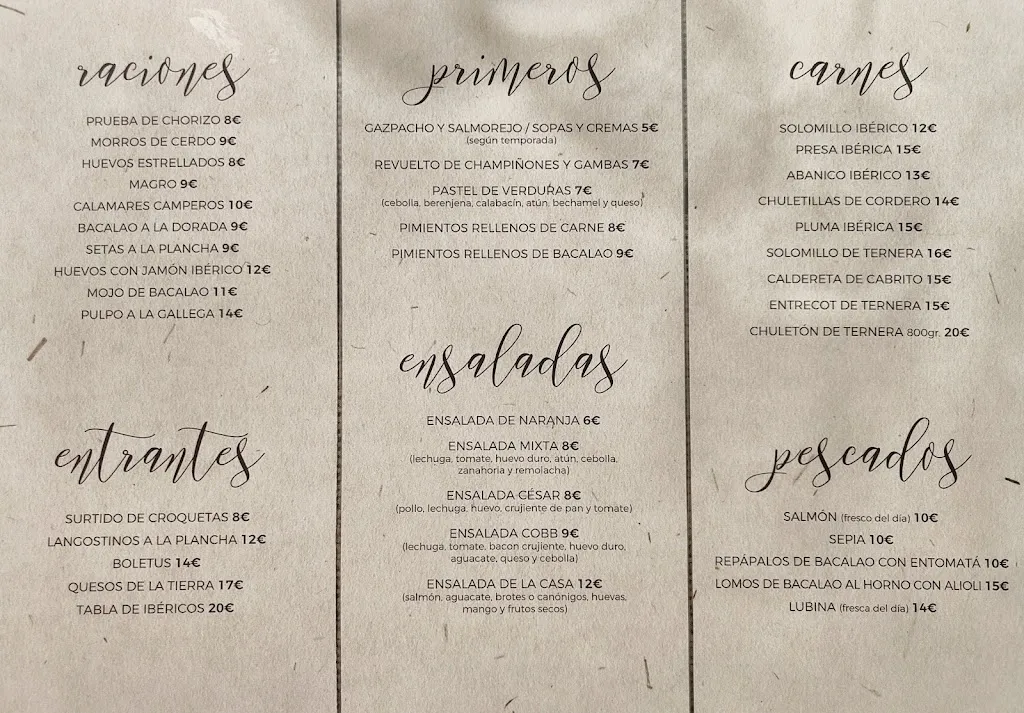 raciones
PRUEBA DE CHORIZO 8€
MORROS DE CERDO 9€
HUEVOS ESTRELLADOS 8€
MAGRO 9€
CALAMARES CAMPEROS 10€
BACALAO A LA DORADA 9€
SETAS A LA PLANCHA 9€
HUEVOS CON JAMÓN IBÉRICO 12€
MOJO DE BACALAO 11€
PULPO A LA GALLEGA 14€
entrantes
SURTIDO DE CROQUETAS 8€
LANGOSTINOS A LA PLANCHA 12€
BOLETUS 14€
QUESOS DE LA TIERRA 17€
TABLA DE IBÉRICOS 20€
primeros
GAZPACHO Y SALMOREJO / SOPAS Y CREMAS 5€
(según temporada)
REVUELTO DE CHAMPIÑONES Y GAMBAS 7€
PASTEL DE VERDURAS 7€
(cebolla, berenjena, calabacín, atún, bechamel y queso)
PIMIENTOS RELLENOS DE CARNE 8€
PIMIENTOS RELLENOS DE BACALAO 9€
ensaladas
ENSALADA DE NARANJA 6€
ENSALADA MIXTA 8€
(lechuga, tomate, huevo duro, atún, cebolla,
zanahoria y remolacha)
ENSALADA CÉSAR 8€
(pollo, lechuga, huevo, crujiente de pan y tomate)
ENSALADA COBB 9€
(lechuga, tomate, bacon crujiente, huevo duro,
aguacate, queso y cebolla)
ENSALADA DE LA CASA 12€
(salmón, aguacate, brotes o canónigos, huevas,
mango y frutos secos)
carnes
SOLOMILLO IBÉRICO 12€
PRESA IBÉRICA 15€
ABANICO IBÉRICO 13€
CHULETILLAS DE CORDERO 14€
PLUMA IBÉRICA 15€
SOLOMILLO DE TERNERA 16€
CALDERETA DE CABRITO 15€
ENTRECOT DE TERNERA 15€
CHULETÓN DE TERNERA 800gr. 20€
pescados
SALMÓN (fresco del día) 10€
SEPIA 10€
REPÁPALOS DE BACALAO CON ENTOMATÁ 10€
LOMOS DE BACALAO AL HORNO CON ALIOLI 15€
LUBINA (fresca del día) 14€